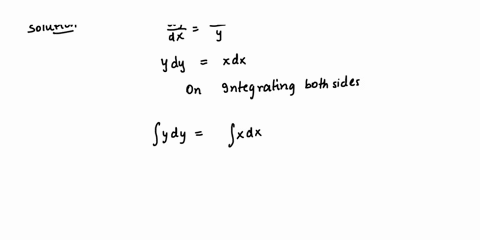 Solution
dx = y
ydy = xdx
On Integrating both sides
∫ydy = ∫xdx